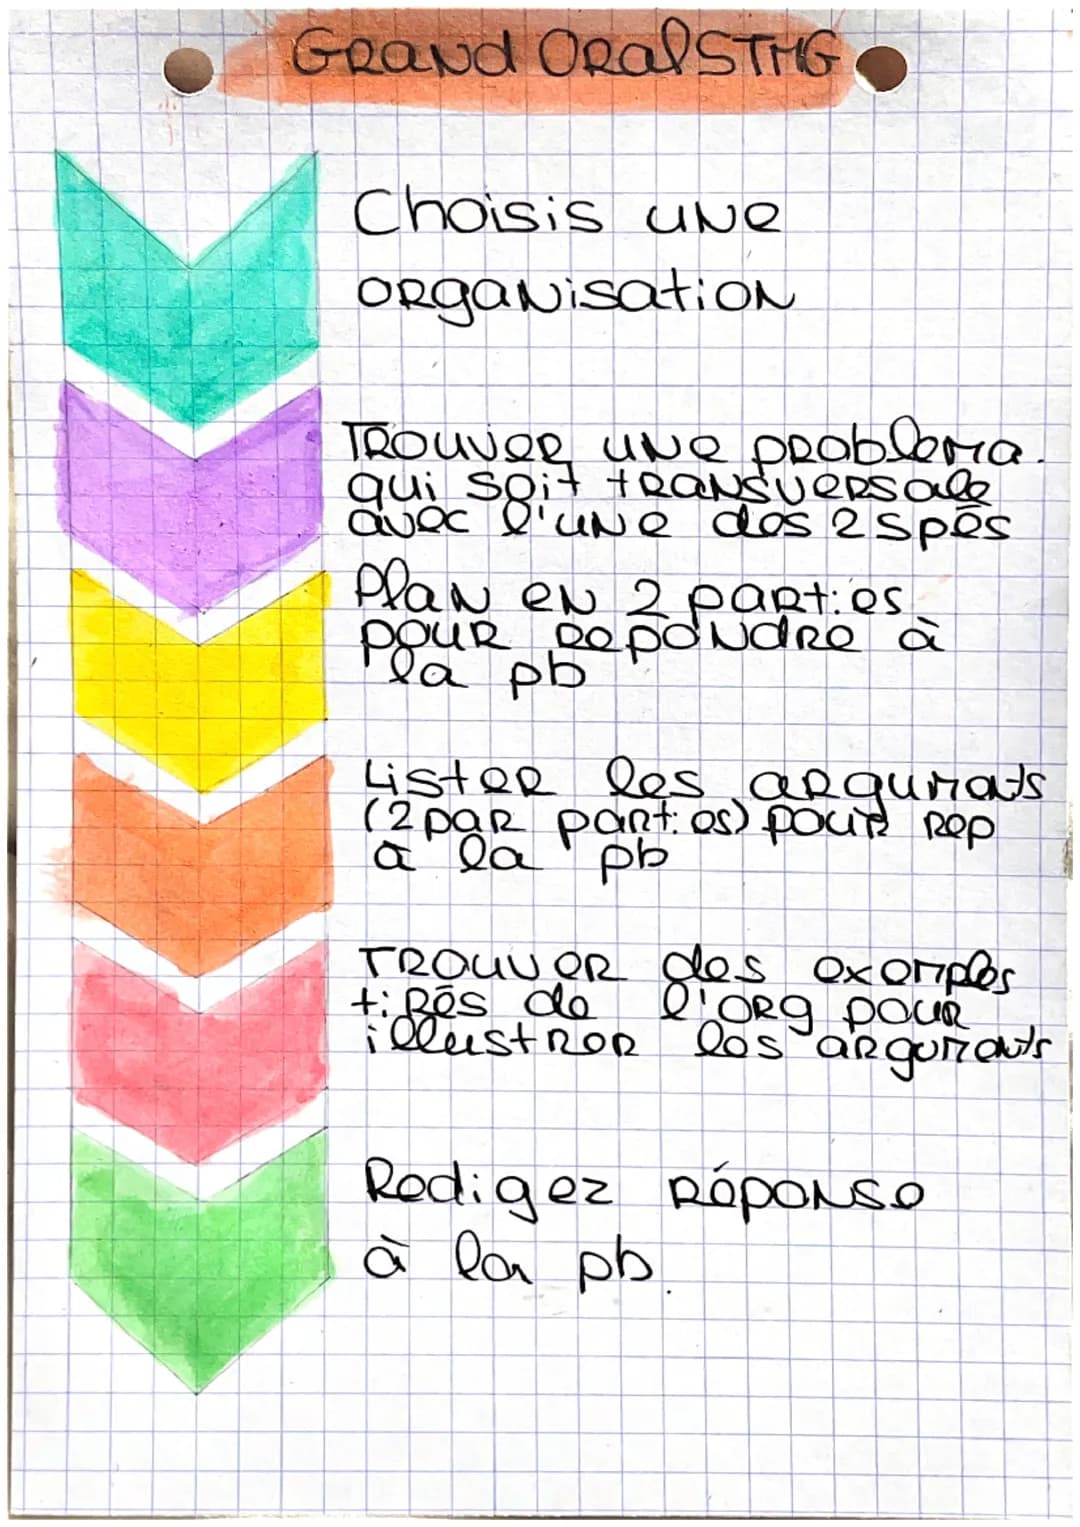 GRAND ORAL STMG
Choisis une
organisation
Trouver une problema.
qui soit transversale
avec l'une des 2 spés
Plan en 2 parties
pour repondre à
la pb
Lister les arguments
(2 par parties) pour rep
à la pb
Trouver des exemples
tirés de l'org pour
illustrer les arguments
Redigez réponse
à la pb.